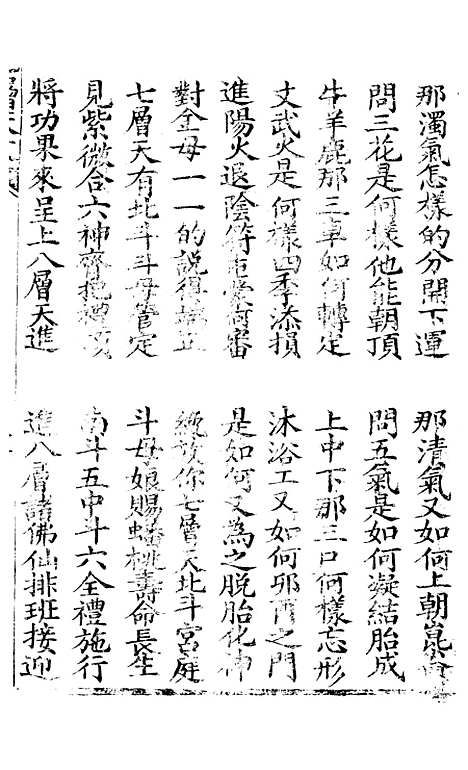 那濁氣怎樣的分開下運　那清氣又如何上朝崑崙
問三花是何樣他能朝頂　問五氣是如何凝結胎成
牛羊鹿那三車如何轉定　上中下那三口何樣忘形
文武火是何樣四季添損　沐浴工又如何卯酉之門
進陽火退陰符　審　是如何又為之脫胎化神
對金母一一的說得端正　纔放你七層天北斗宮庭
七層天有北斗斗母管定　斗母娘賜蟠桃壽命長生
見紫微合六神齊　南斗五中斗六全禮施行
將功果來呈上八層天進　進八層諸佛仙排班接迎